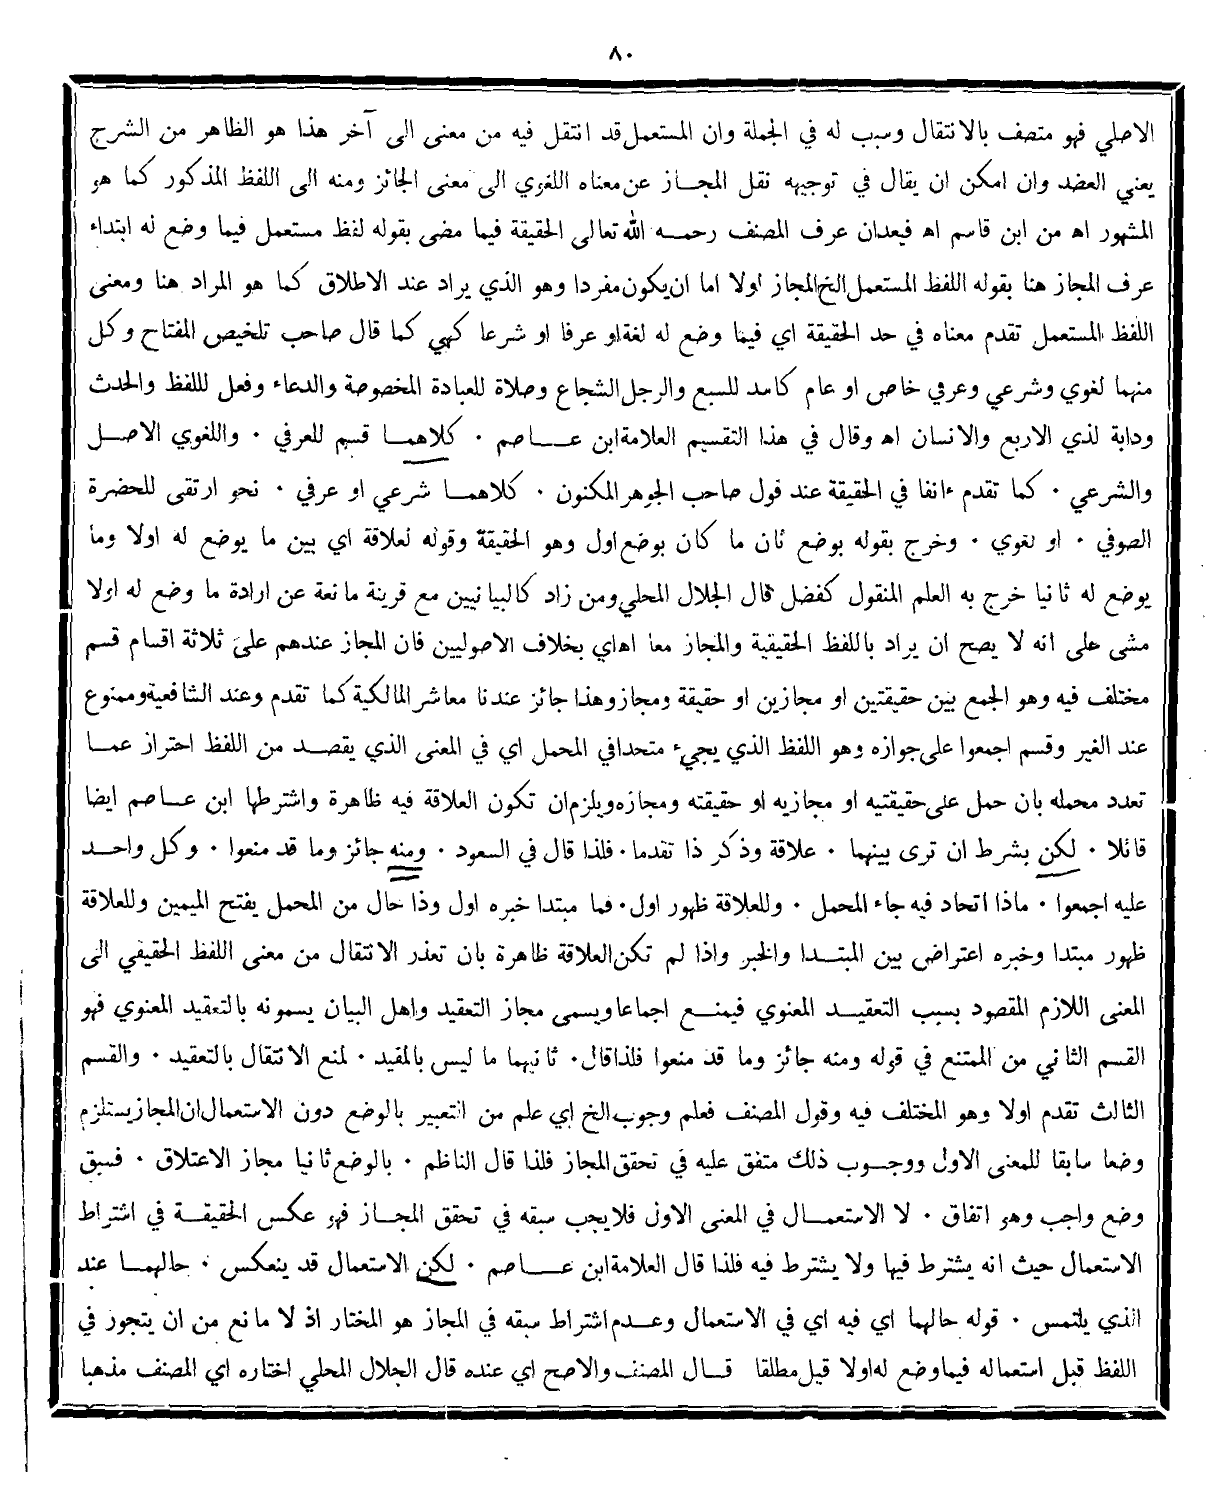 ٨٠
الاصلي فهو متصف بالانتقال وسبب له في الجملة وان المستعمل قد انتقل فيه من معنى الى آخر هذا هو الظاهر من الشرح
يعني العضد وان امكن ان يقال في توجيهه نقل المجاز عن معناه اللغوي الى معنى الجائز ومنه الى اللفظ المذكور كما هو
المشهور اه من ابن قاسم اه فبعدان عرف المصنف رحمه الله تعالى الحقيقة فيما مضى بقوله لفظ مستعمل فيما وضع له ابتداء
عرف المجاز هنا بقوله اللفظ المستعمل الخ المجاز اولا اما ان يكون مفردا وهو الذي يراد عند الاطلاق كما هو المراد هنا ومعنى
اللفظ المستعمل تقدم معناه في حد الحقيقة اي فيما وضع له لغة او عرفا او شرعا كهي كما قال صاحب تلخيص المفتاح وكل
منهما لغوي وشرعي وعرفي خاص او عام كاسد للسبع والرجل الشجاع وصلاة للعبادة المخصوصة والدعاء وفعل لللفظ والحدث
ودابة لذي الاربع والانسان اه وقال في هذا التقسيم العلامة ابن عاصم ٠ كلاهما قسم للعرفي ٠ واللغوي الاصل
والشرعي ٠ كما تقدم ءانفا في الحقيقة عند قول صاحب الجوهر المكنون ٠ كلاهما شرعي او عرفي ٠ نحو ارتقى للحضرة
الصوفي ٠ او لغوي ٠ وخرج بقوله بوضع ثان ما كان بوضع اول وهو الحقيقة وقوله لعلاقة اي بين ما يوضع له اولا وما
يوضع له ثانيا خرج به العلم المنقول كفضل قال الجلال المحلي ومن زاد كالبيانيين مع قرينة مانعة عن ارادة ما وضع له اولا
مشى على انه لا يصح ان يراد باللفظ الحقيقية والمجاز معا اه اي بخلاف الاصوليين فان المجاز عندهم على ثلاثة اقسام قسم
مختلف فيه وهو الجمع بين حقيقتين او مجازين او حقيقة ومجاز وهذا جائز عندنا معاشر المالكية كما تقدم وعند الشافعية وممنوع
عند الغير وقسم اجمعوا على جوازه وهو اللفظ الذي يجيء متحدا في المحمل اي في المعنى الذي يقصد من اللفظ احتراز عما
تعدد محمله بان حمل على حقيقتيه او مجازيه او حقيقته ومجازه ويلزم ان تكون العلاقة فيه ظاهرة واشترطها ابن عاصم ايضا
قائلا ٠ لكن بشرط ان ترى بينهما ٠ علاقة وذكر ذا تقدما ٠ فلذا قال في السعود ٠ ومنه جائز وما قد منعوا ٠ وكل واحد
عليه اجمعوا ٠ ماذا اتحاد فيه جاء المحمل ٠ وللعلاقة ظهور اول ٠ فما مبتدا خبره اول وذا حال من المحمل يفتح الميمين وللعلاقة
ظهور مبتدا وخبره اعتراض بين المبتدا والخبر واذا لم تكن العلاقة ظاهرة بان تعذر الانتقال من معنى اللفظ الحقيقي الى
المعنى اللازم المقصود بسبب التعقيد المعنوي فيمنع اجماعا ويسمى مجاز التعقيد واهل البيان يسمونه بالتعقيد المعنوي فهو
القسم الثاني من الممتنع في قوله ومنه جائز وما قد منعوا فلذا قال ٠ ثانيهما ما ليس بالمفيد ٠ لمنع الانتقال بالتعقيد ٠ والقسم
الثالث تقدم اولا وهو المختلف فيه وقول المصنف فعلم وجوب الخ اي علم من التعبير بالوضع دون الاستعمال ان المجاز يستلزم
وضعا سابقا للمعنى الاول ووجوب ذلك متفق عليه في تحقق المجاز فلذا قال الناظم ٠ بالوضع ثانيا مجاز الاعتلاق ٠ فسبق
وضع واجب وهو اتفاق ٠ لا الاستعمال في المعنى الاول فلا يجب سبقه في تحقق المجاز فهو عكس الحقيقة في اشتراط
الاستعمال حيث انه يشترط فيها ولا يشترط فيه فلذا قال العلامة ابن عاصم ٠ لكن الاستعمال قد ينعكس ٠ حالهما عند
الذي يلتمس ٠ قوله حالهما اي فيه اي في الاستعمال وعدم اشتراط سبقه في المجاز هو المختار اذ لا مانع من ان يتجوز في
اللفظ قبل استعماله فيما وضع له اولا قيل مطلقا قال المصنف والاصح اي عنده قال الجلال المحلي اختاره اي المصنف مذهبا